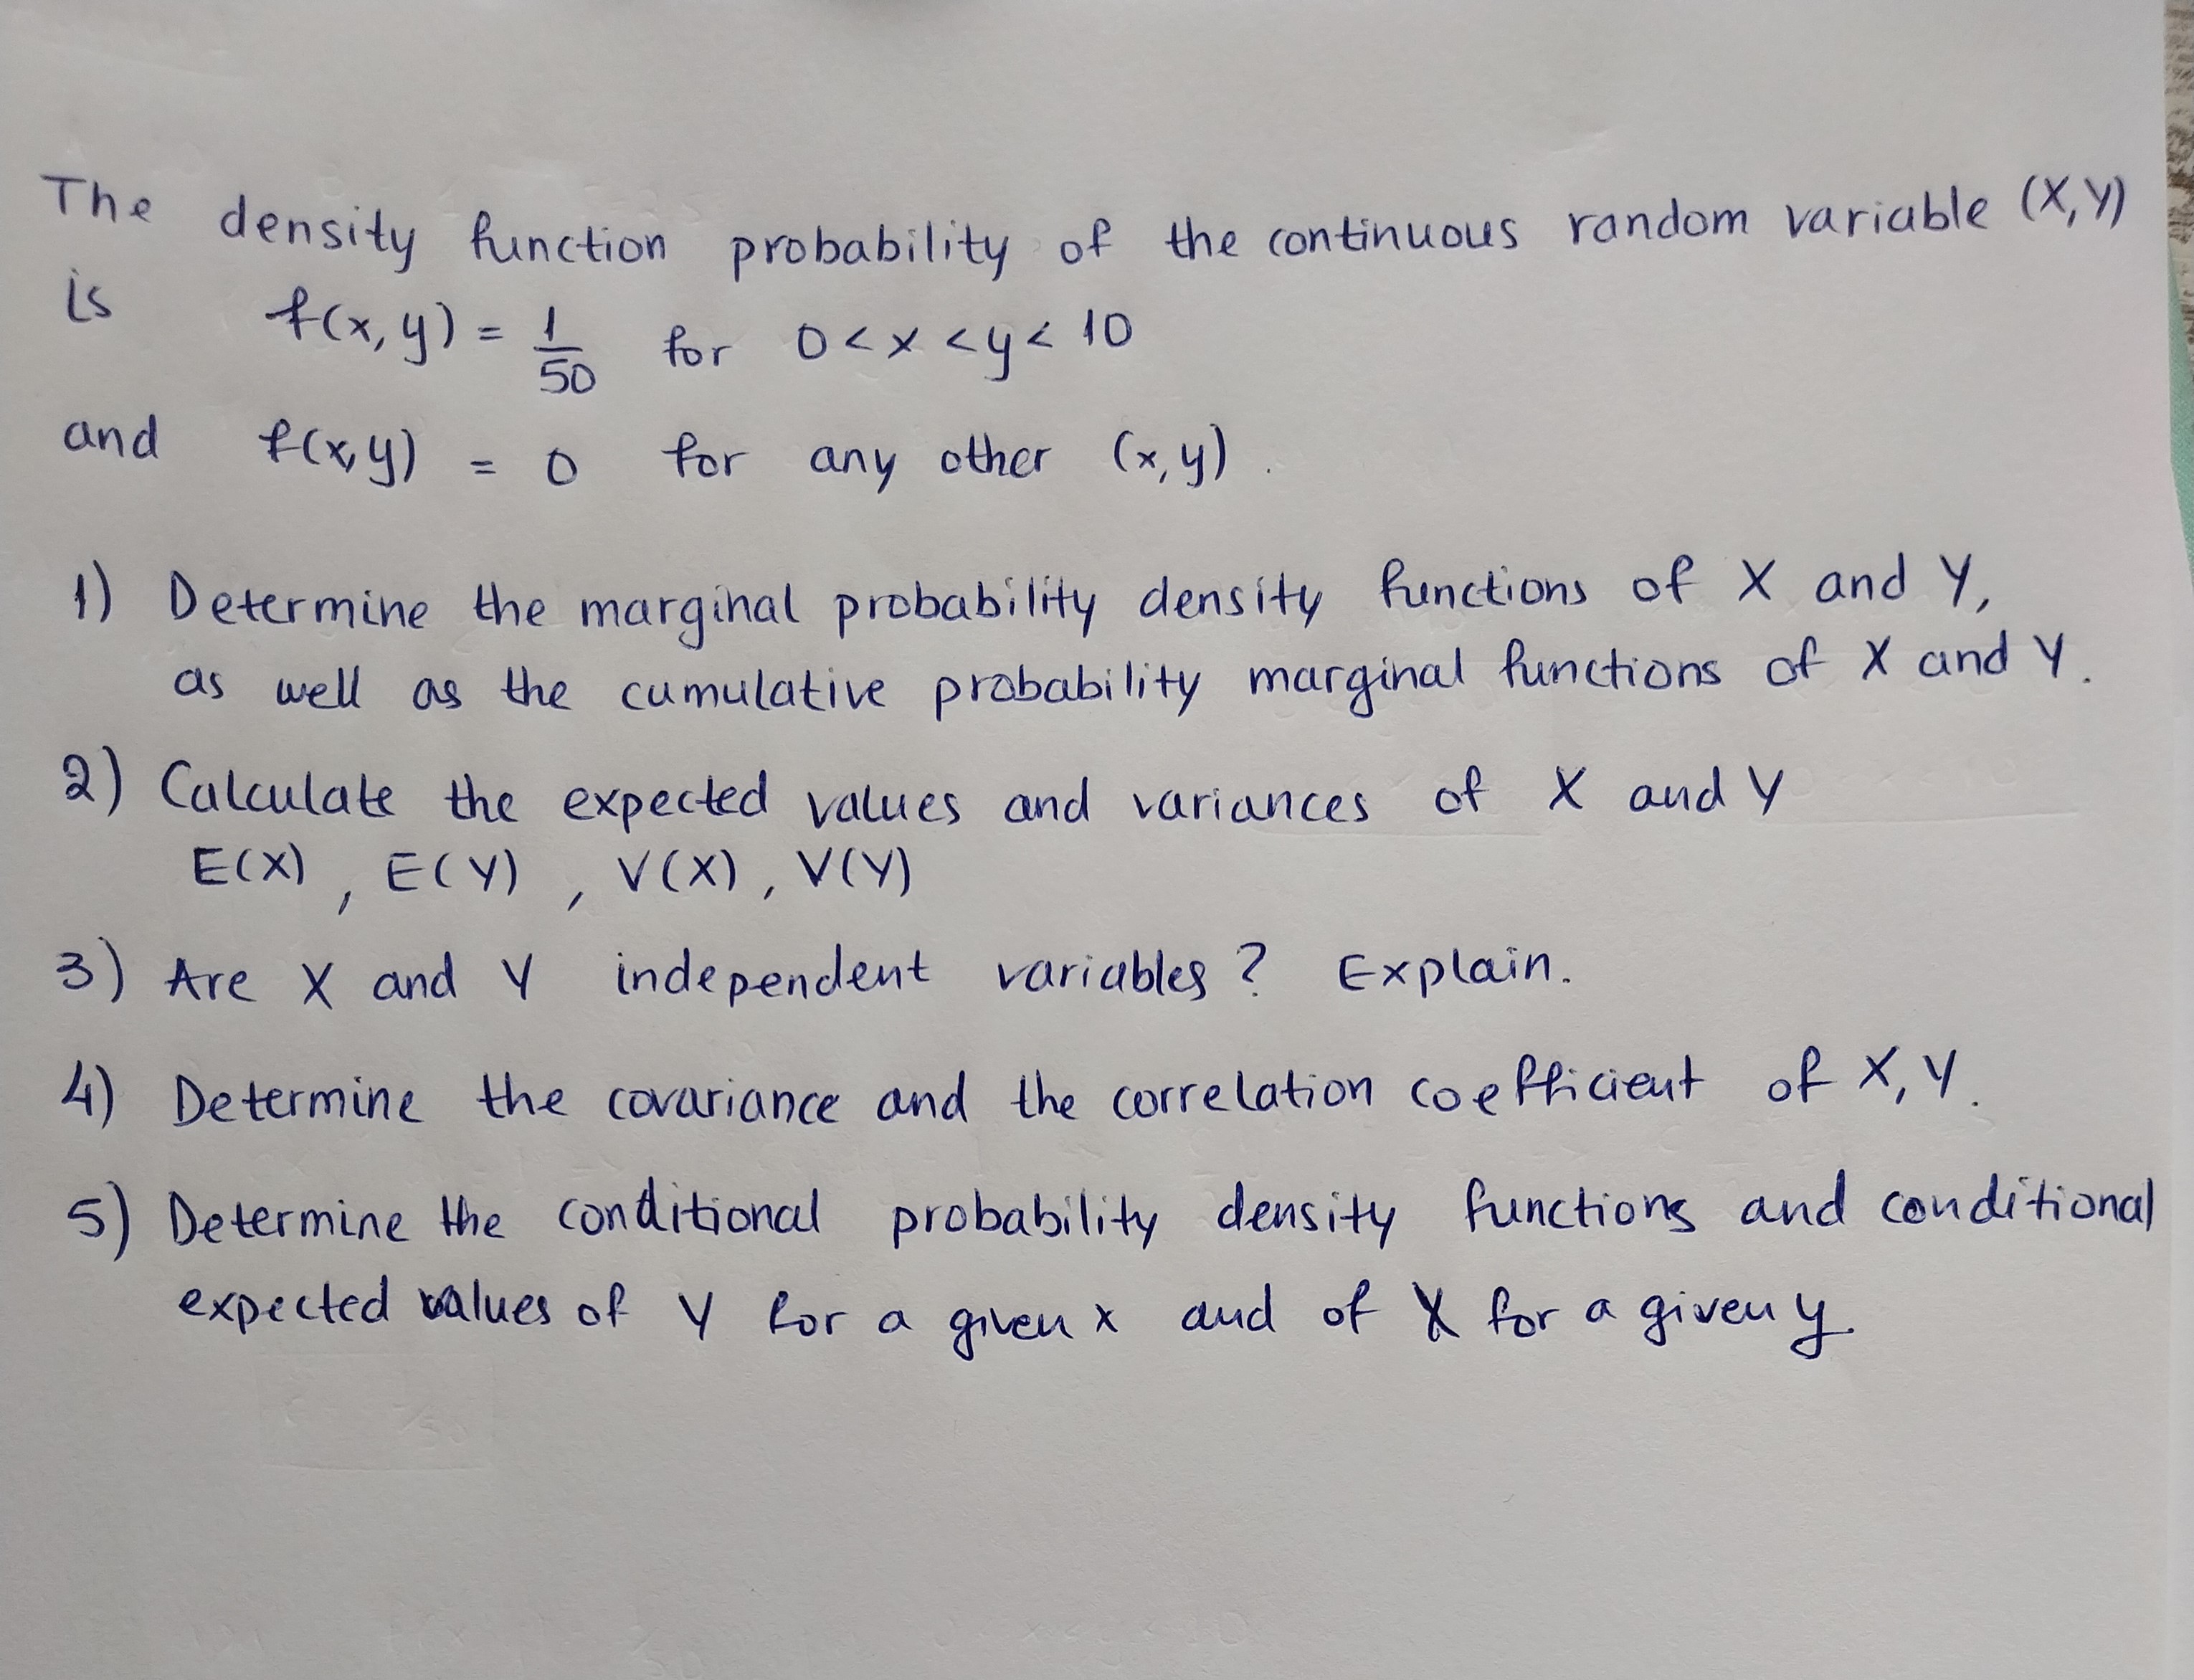 The density function probability of the continuous random variable (X,Y)
is f(x,y) = 1/50 for 0 < x < y < 10
and f(x,y) = 0 for any other (x,y).
1) Determine the marginal probability density functions of X and Y,
as well as the cumulative probability marginal functions of X and Y.
2) Calculate the expected values and variances of X and Y
E(X), E(Y), V(X), V(Y)
3) Are X and Y independent variables? Explain.
4) Determine the covariance and the correlation coefficient of X, Y.
5) Determine the conditional probability density functions and conditional
expected values of Y for a given x and of X for a given y.